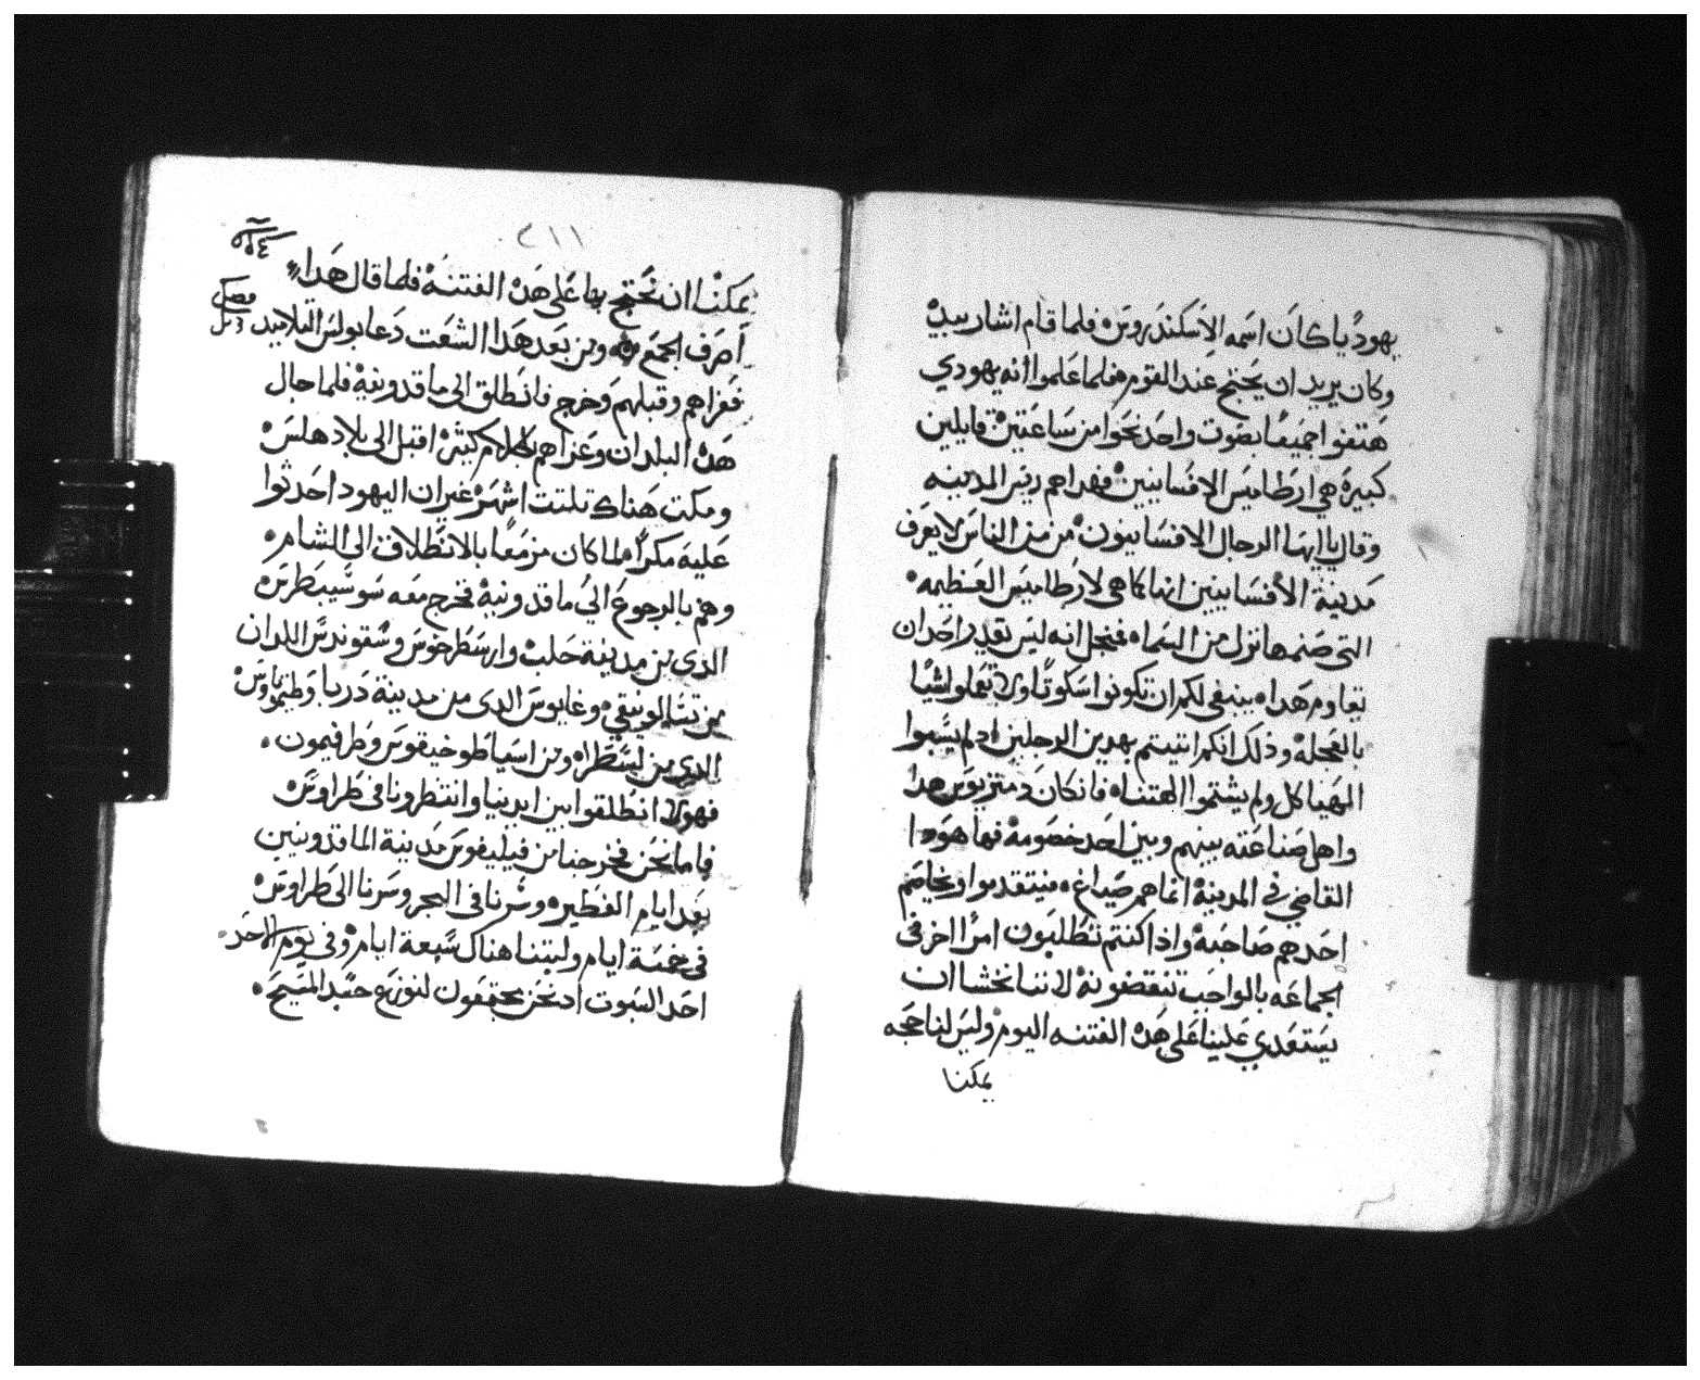 يهوديا كان اسمه الاسكندروس فلما قام اشار بيده
وكان يريد ان يحتج عند القوم فلما علموا انه يهودي
هتفوا جميعا بصوت واحد نحوا من ساعتين قايلين
كبيرة هي ارطاميس الافسانيين فهداهم ريس المدينه
وقال يا ايها الرجال الافسانيون من من الناس لا يعرف
مدينة الافسانيين انها كاهى لارطاميس العظيمه
التى صنمها نزل من السماء فنجل انه ليس يقدر احد ان
يقاوم هدا ينبغى لكم ان تكونوا سكوتا ولا تعملوا شيا
بالعجلة وذلك انكم اتيتم بهدين الرجلين اد لم يسبوا
الهياكل ولم يشتموا الهتنا فان كان دمتريوس هدا
واهل صناعته بينهم وبين احد خصومة فها هودا
القاضي في المدينة انما هم صياغ فيتقدموا ويخاصم
احدهم صاحبه واذا كنتم تطلبون امرا اخر فى
الجماعه بالواجب تنقضونه لاننا نخشا ان
يستعدي علينا على هده الفتنه اليوم وليس لنا حجه
يمكنا
٢١١
يمكنا ان نحتج بها على هده الفتنة فلما قال هدا
اصرف الجمع ومن بعد هدا الشغت دعا بولس التلاميد
فصل
فعزاهم وقبلهم وخرج فانطلق الى ماقدونية فلما جال
هده البلدان وعزاهم بكلام كثير اقبل الى بلاد هلس
ومكت هناك تلتت اشهر غير ان اليهود احدثوا
عليه مكرا لما كان مزمعا بالانطلاق الى الشام
وهم بالرجوع الى ماقدونية فخرج معه سوسيبطرس
الذى من مدينة حلب وارسطرخوس وسقوندس اللدان
من تسالونيقي وغايوس الدى من مدينة دربا وطيماتاوس
الدى من لسطرا ومن اسيا طوخيقوس وطرفيمون
فهولا انطلقوا بين ايدينا وانتظرونا فى طراوس
فاما نحن فخرجنا من فيليفوس مدينة الماقدونيين
بعد ايام الفطير وسرنا فى البحر وسرنا الى طراوس
فى خمسة ايام ولبتنا هناك سبعة ايام وفى يوم الاحد
احد السبوت اد نحن مجتمعون لنوزع جسد المسيح